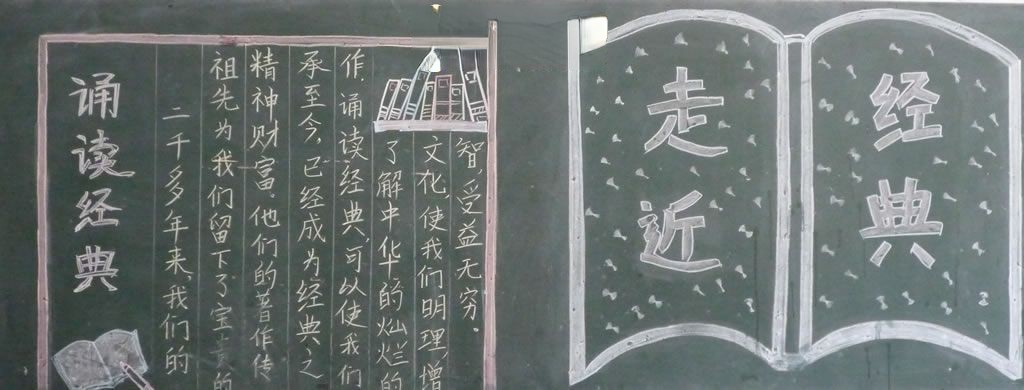 诵读经典
二千多年来，我们的
祖先为我们留下了宝贵的
精神财富。他们的著作传
承至今，已经成为经典之
作，诵读经典，可以使我们
了解中华的灿烂的
文化，使我们明理，增
智，受益无穷。
走近
经典